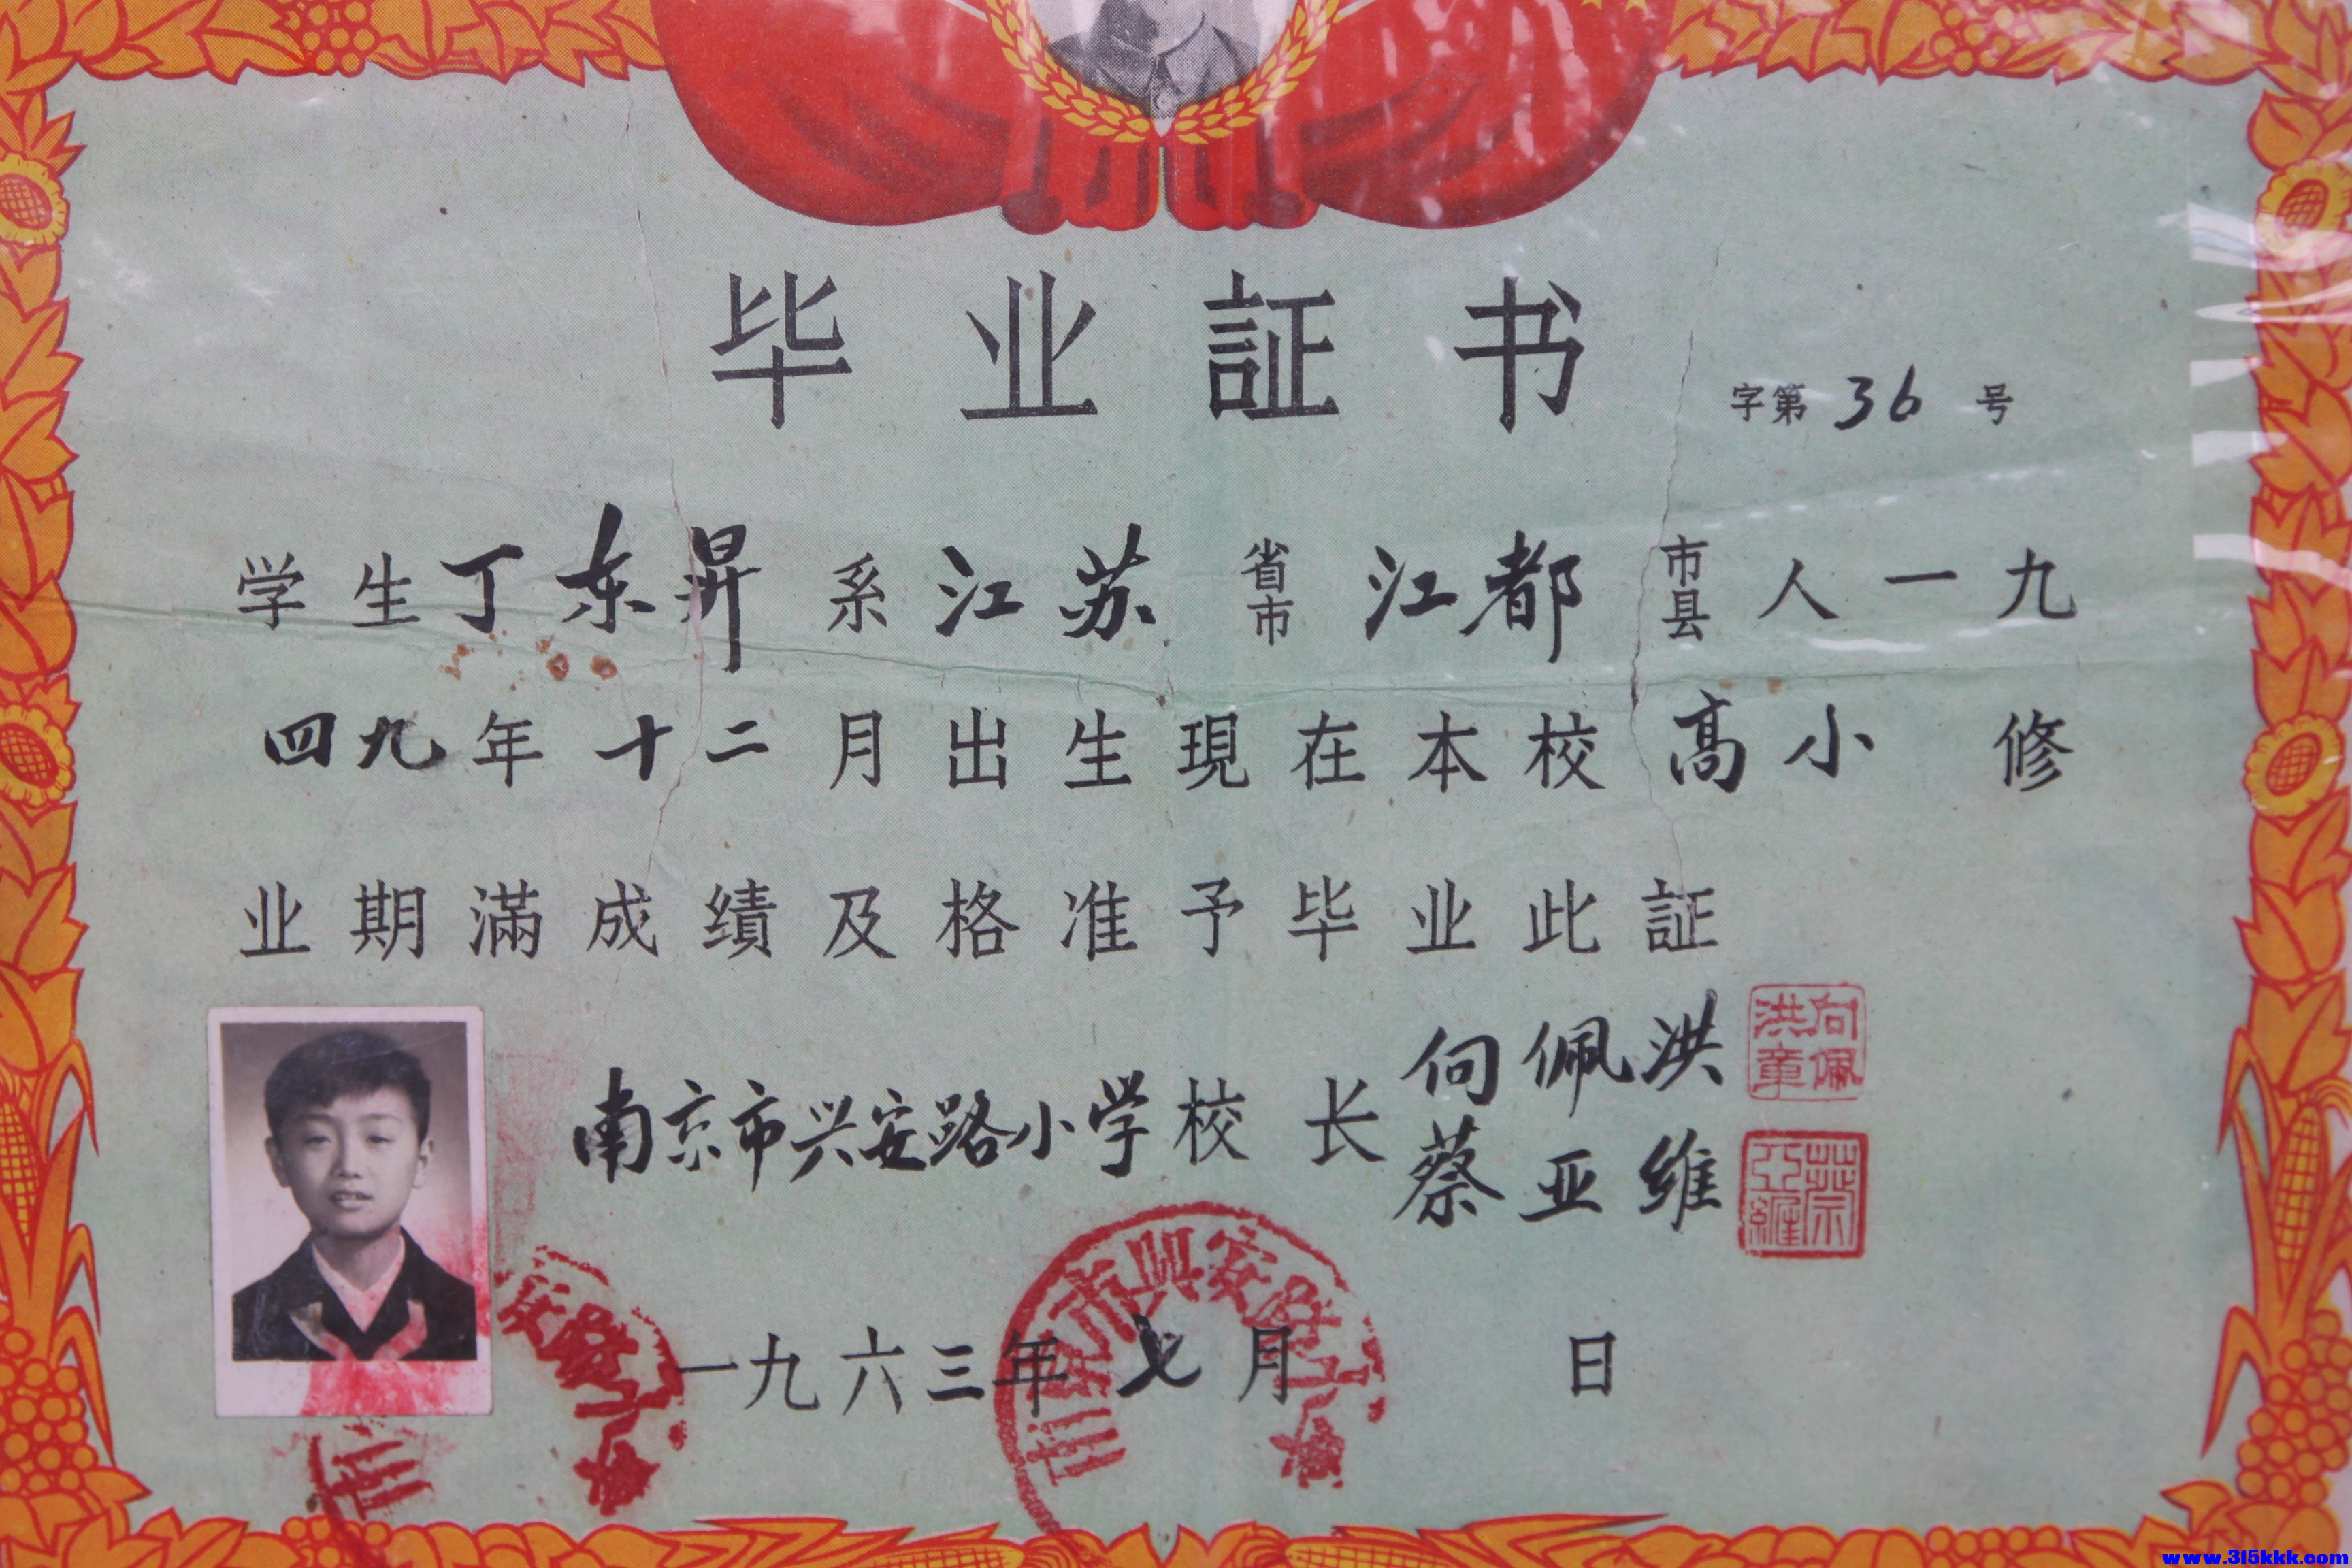 毕业証书
字第 36 号
学生丁东昇系江苏省市江都市县人一九
四九年十二月出生現在本校高小修
业期滿成績及格准予毕业此証
南京市兴安路小学校长何佩洪
蔡亚维
何佩洪章
蔡亞維
市興安路小
安路小
一九六三年七月 日
www.315kkk.com